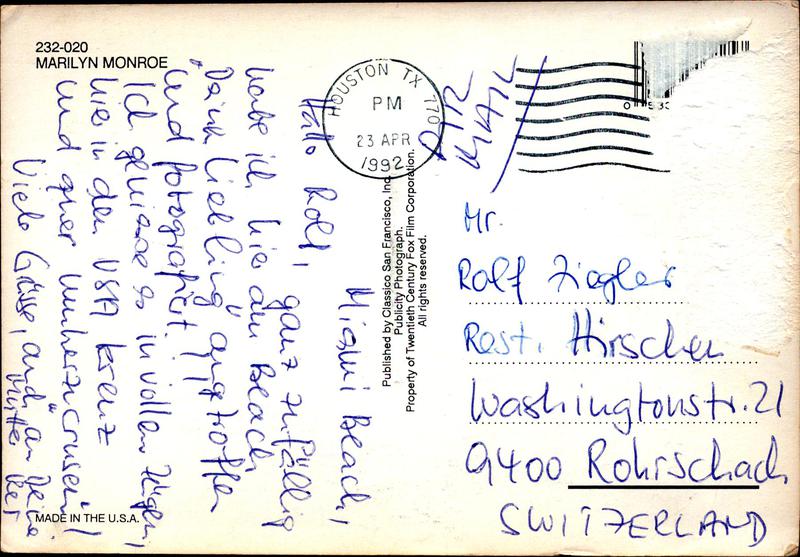 232-020
MARILYN MONROE
HOUSTON TX 770
PM
23 APR
1992
AIR
MAIL
Miami Beach,
Hallo Rolf, ganz zufällig
habe ich hier am Beach
Deine Liebling angetroffen
und fotografiert!
Ich geniesse es in vollen Zügen,
hier in den USA kreuz
und quer umherzucruisen!
Viele Grüsse, auch an Deine
Mutter
Published by Classico San Francisco, Inc.
Publicity Photograph.
Property of Twentieth Century Fox Film Corporation.
All rights reserved.
Mr.
Rolf Ziegler
Rest. Hirschen
Washingtonstr. 21
9400 Rohrschach
SWITZERLAND
MADE IN THE U.S.A.